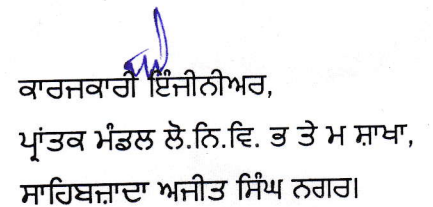 ਕਾਰਜਕਾਰੀ ਇੰਜੀਨੀਅਰ,
ਪ੍ਰਾਂਤਕ ਮੰਡਲ ਲੋ.ਨਿ.ਵਿ. ਭ ਤੇ ਮ ਸ਼ਾਖਾ,
ਸਾਹਿਬਜ਼ਾਦਾ ਅਜੀਤ ਸਿੰਘ ਨਗਰ।